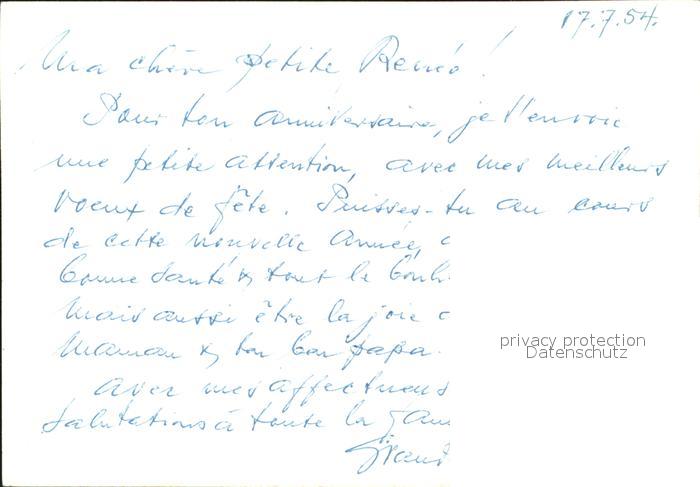 17.7.54.
Ma chère petite Renée!
Pour ton anniversaire, je t'envoie
une petite attention, avec mes meilleurs
voeux de fête. Puisses-tu au cours
de cette nouvelle Année,
bonne santé & tout le bonh
mais aussi être la joie
Maman & ton bon papa.
Avec mes affectueus
salutations à toute la fam
Grand
privacy protection
Datenschutz